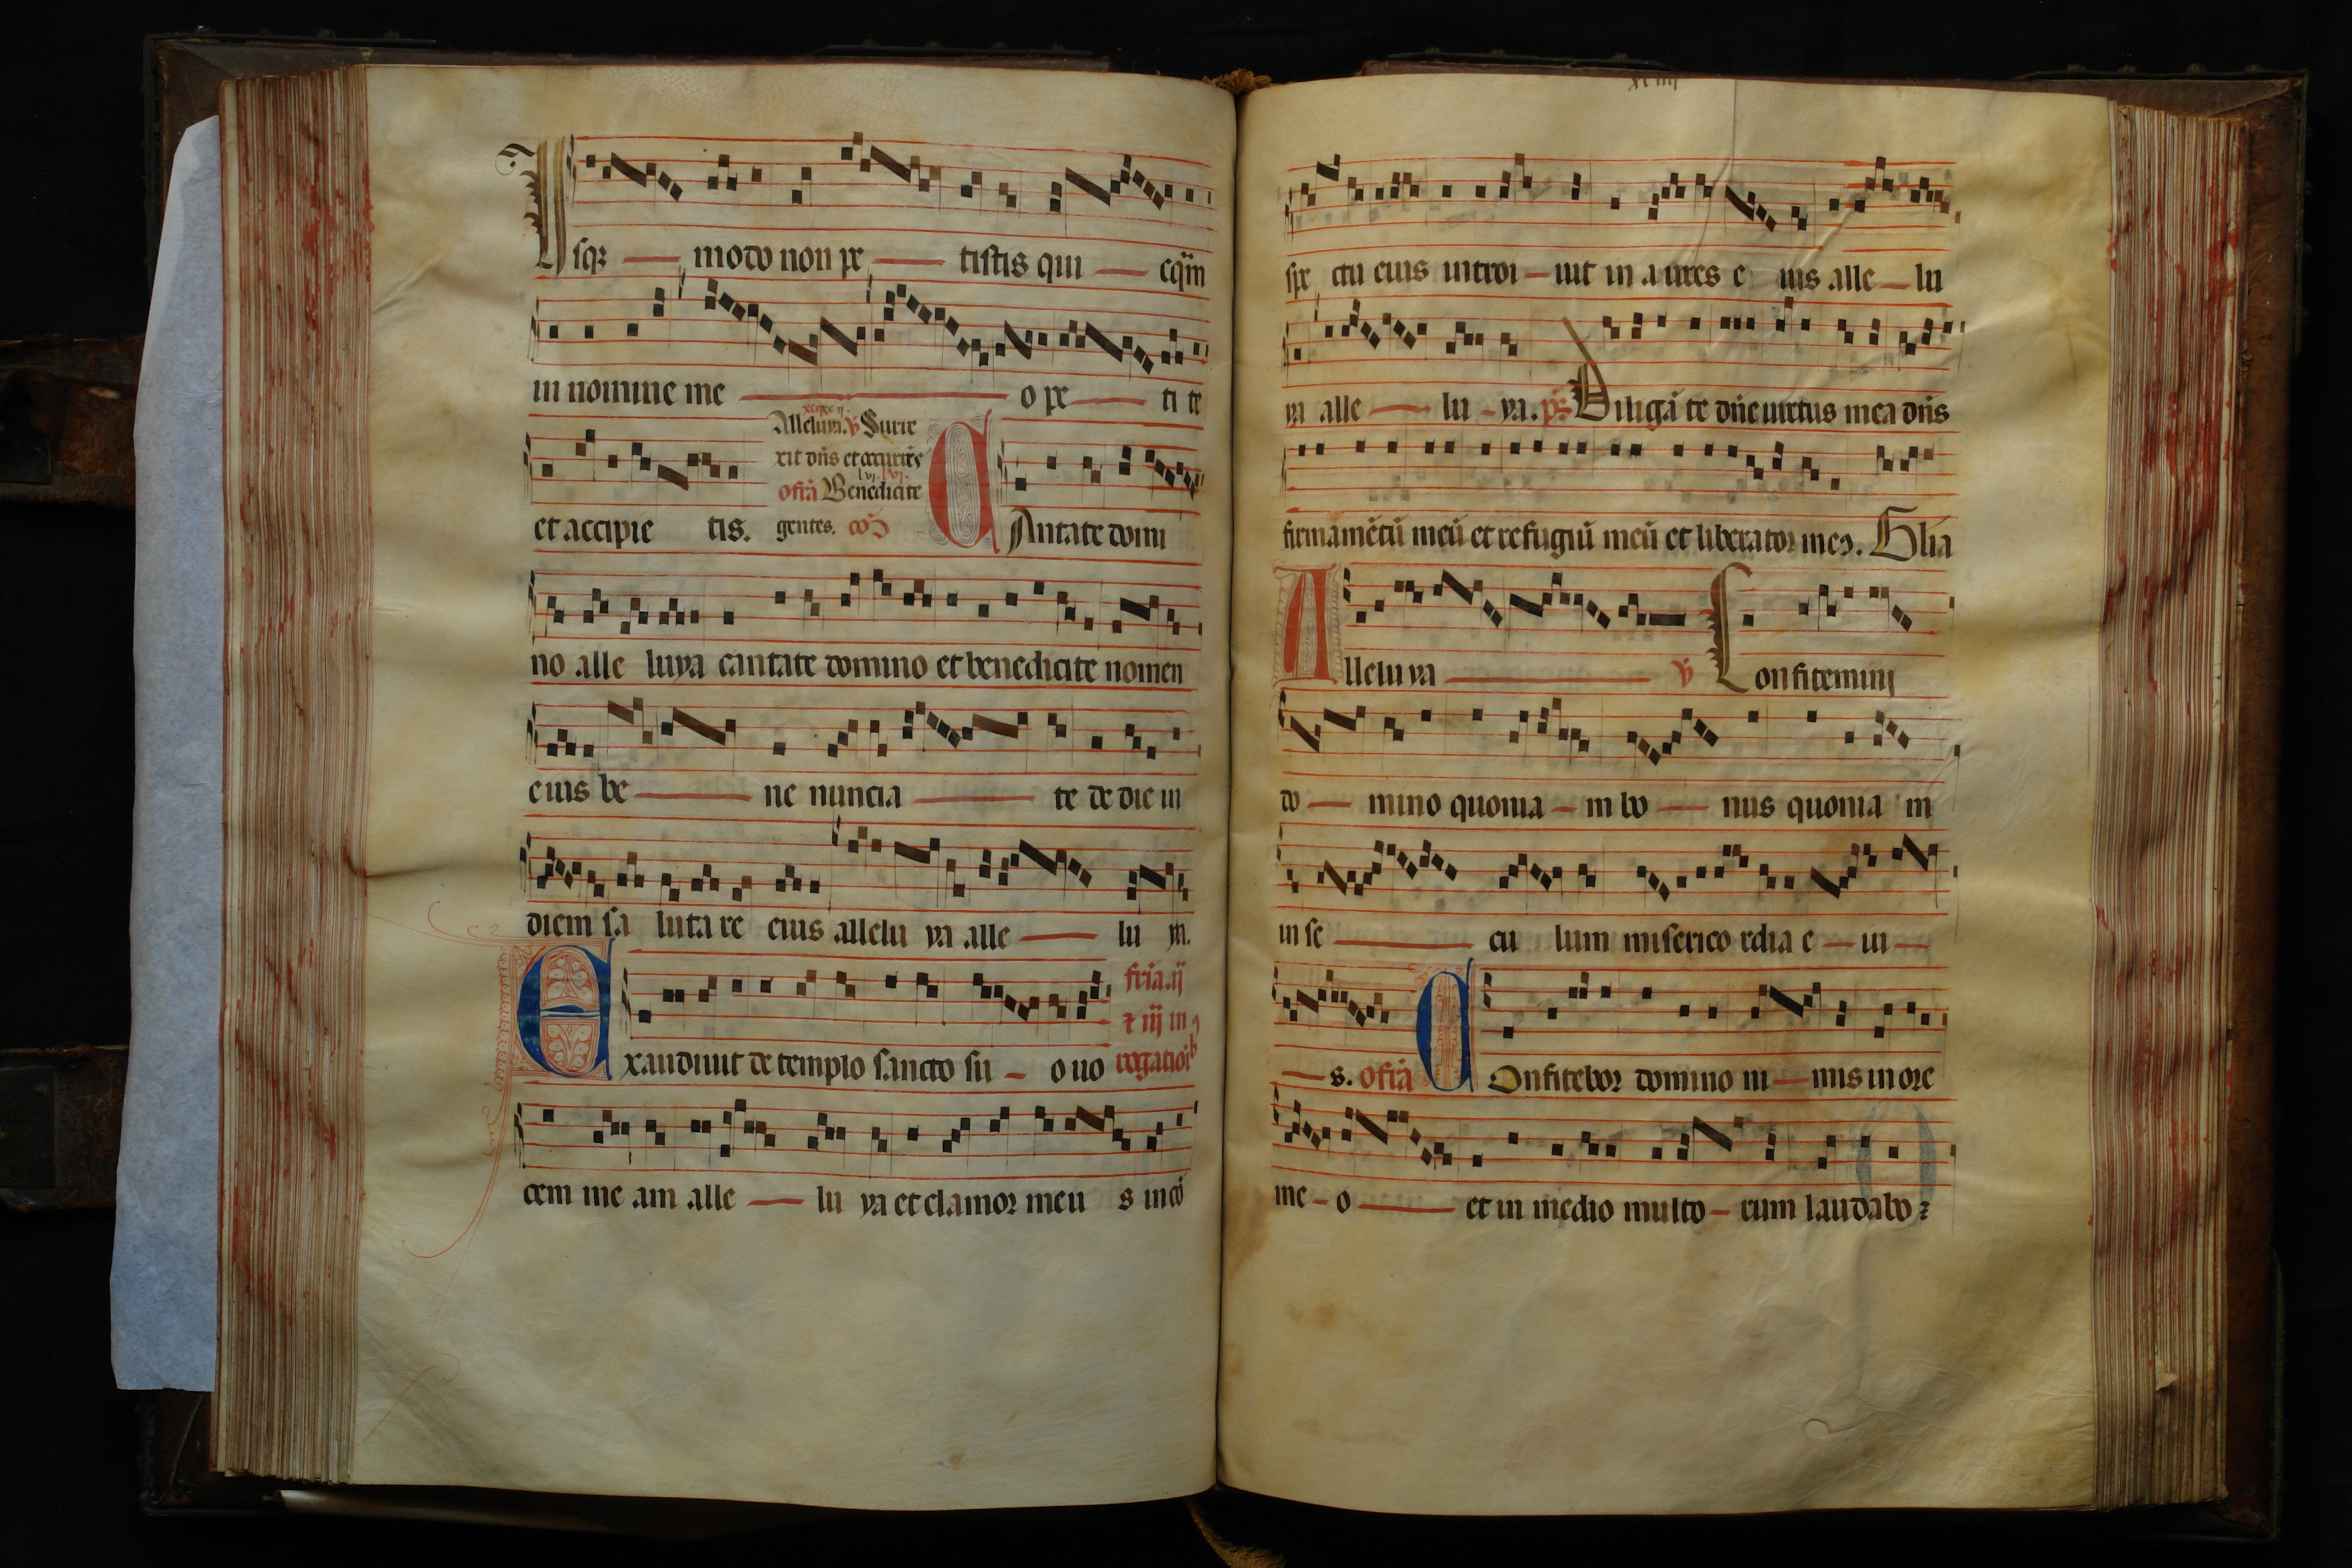 Usq; modo non pe tistis qui cq̃m
in nomine me o pe ti te
et accipie tis.
Alleluya. ℣ Surre
xit dñs et
ofr̃a Benedicite
gentes. cõ
CAntate domi
no alle luya cantate domino et benedicite nomen
eius be ne nuncia te de die in
diem sa luta re eius allelu ya alle lu ya.
Exaudiuit de templo sancto su o uo
fr̃ia. ij
⁊ iij in
rogatiõib
cem me am alle lu ya et clamor meu s in cõ
xciiij
spe ctu eius introi uit in a ures e ius alle lu
ya alle lu ya. ps̃ Diligã te dñe uirtus mea dñs
firmamẽtũ meũ et refugiũ meũ et liberator meꝰ. Glia
Alleluya ℣ Confitemini
do mino quonia m bo nus quonia m
in se cu lum miserico rdia e iu
s. ofr̃a COnfitebor domino ni mis in ore
me o et in medio multo rum laudabo ⁊